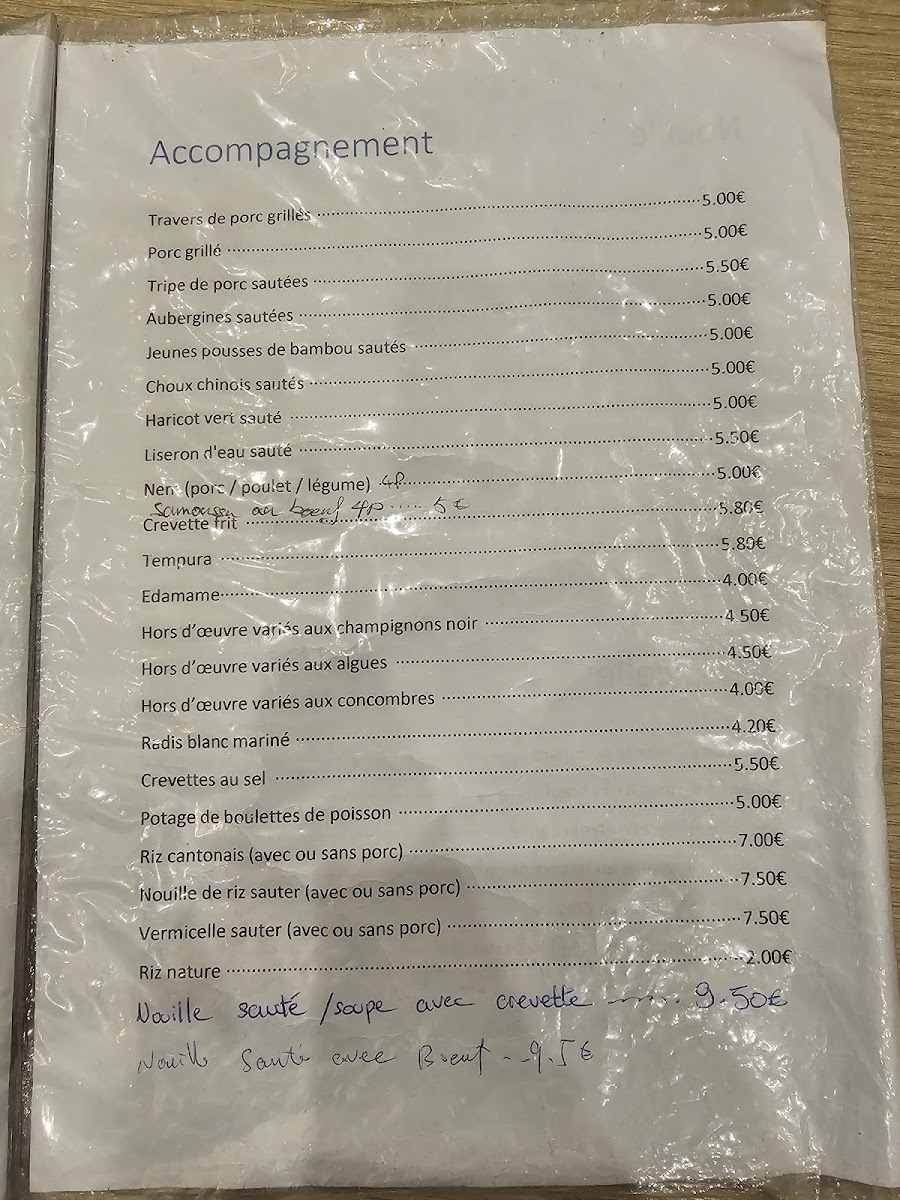 Accompagnement
Travers de porc grillés 5.00€
Porc grillé 5.00€
Tripe de porc sautées 5.50€
Aubergines sautées 5.00€
Jeunes pousses de bambou sautés 5.00€
Choux chinois sautés 5.00€
Haricot vert sauté 5.00€
Liseron d'eau sauté 5.50€
Nem (porc / poulet / légume) 4P 5.00€
Samoussa au boeuf 4P .... 5€
Crevette frit 5.80€
Tempura 5.80€
Edamame 4.00€
Hors d'œuvre variés aux champignons noir 4.50€
Hors d'œuvre variés aux algues 4.50€
Hors d'œuvre variés aux concombres 4.00€
Radis blanc mariné 4.20€
Crevettes au sel 5.50€
Potage de boulettes de poisson 5.00€
Riz cantonais (avec ou sans porc) 7.00€
Nouille de riz sauter (avec ou sans porc) 7.50€
Vermicelle sauter (avec ou sans porc) 7.50€
Riz nature 2.00€
Nouille sauté /soupe avec crevette ..... 9.50€
Nouille Sauté avec Boeuf .. 9.5€